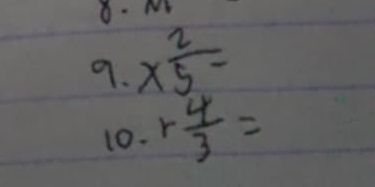 8. M
9. x 2/5 =
10. r 4/3 =